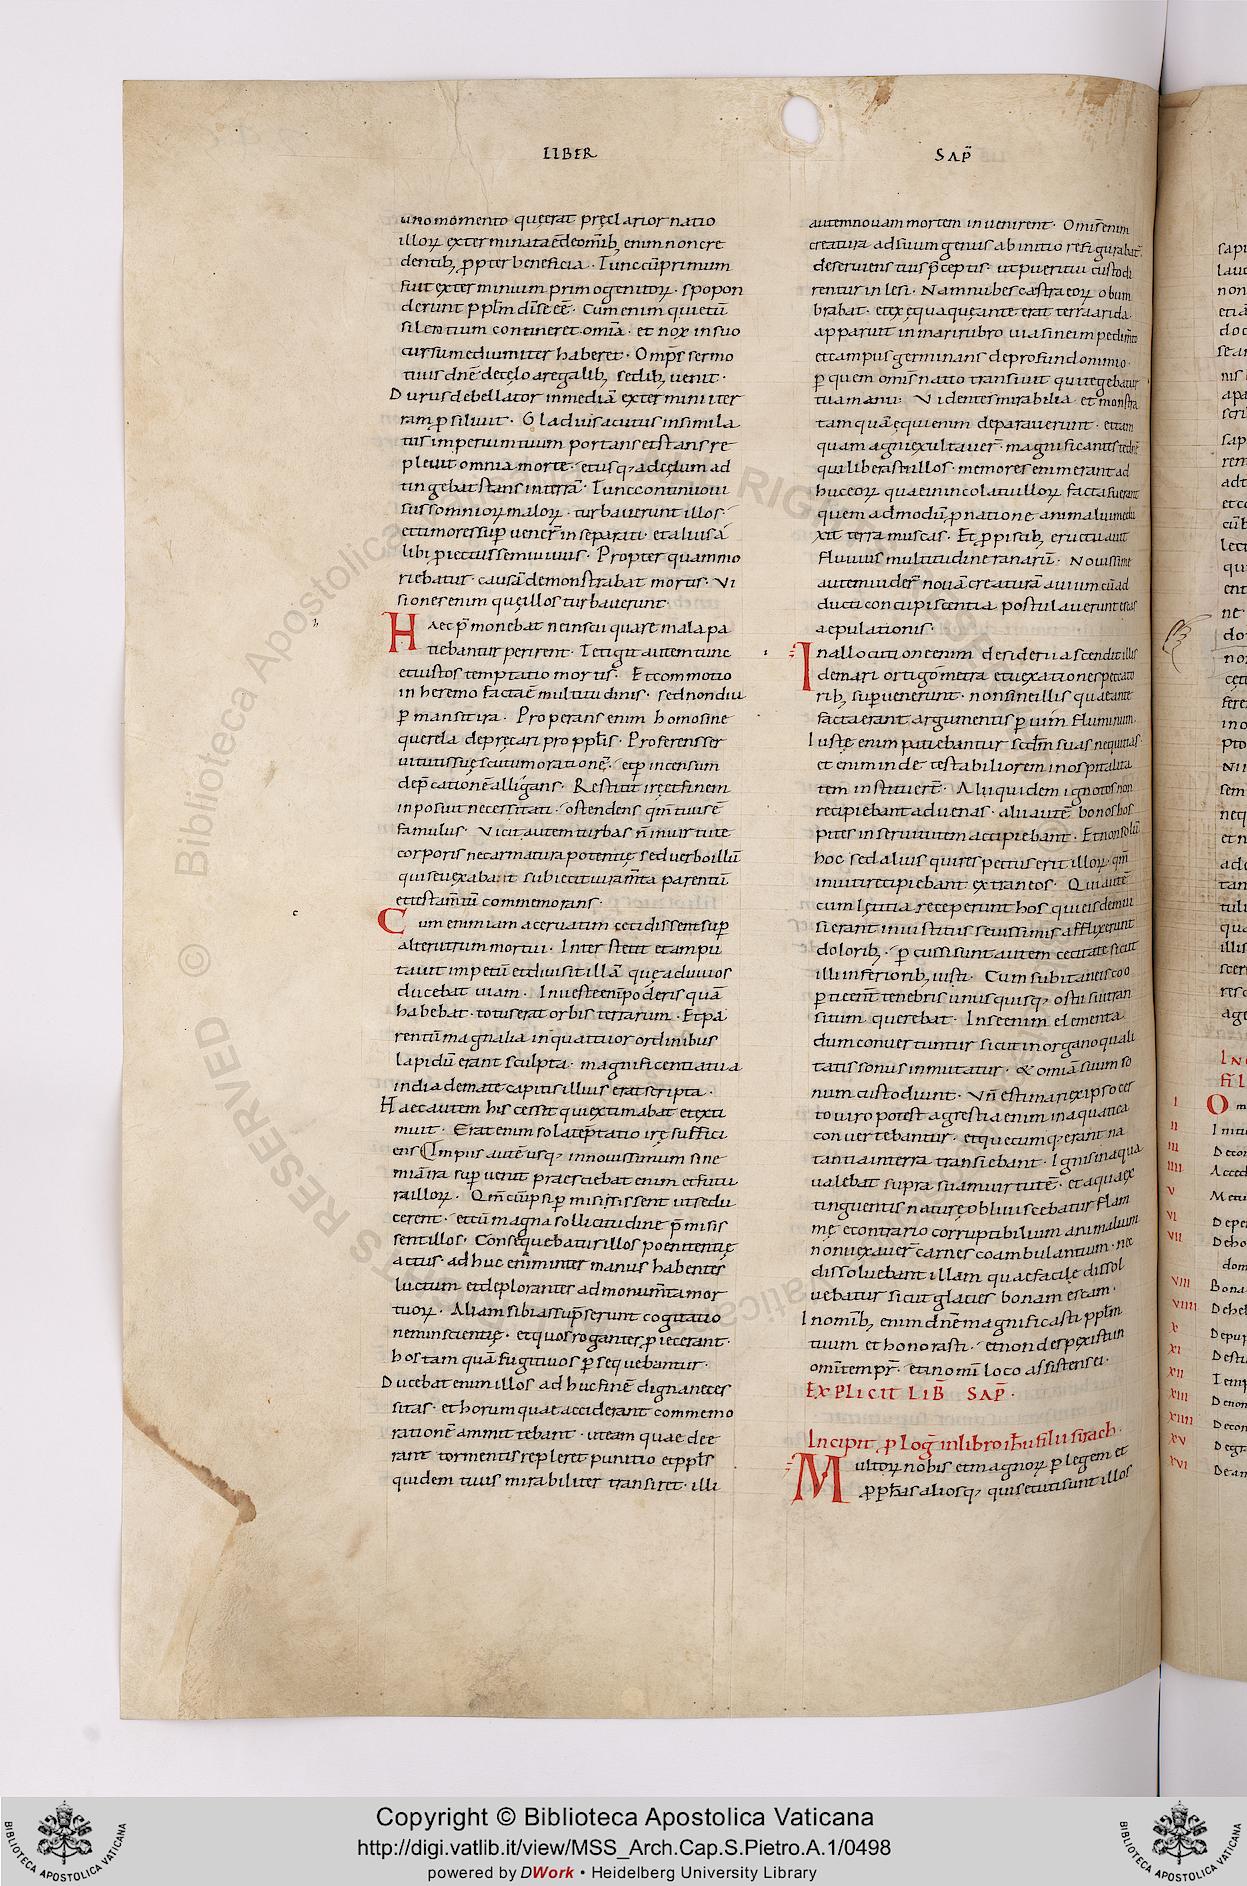 LIBER
SAP̄
uno momento quęerat pręclarior natio
illoꝝ exterminata ē deomīb; enim non cre
dentib; ꝓpter beneficia · Tunc cū primum
fuit exterminium primogenitoꝝ · spopon
derunt ꝓpplm dī se eē · Cum enim quietū
silentium contineret omīa · et nox in suo
cursu medium iter haberet · Omps̄ sermo
tuus dnē decęlo aregalib; sedib; uenit ·
Durus debellator in mediā exterminii ter
ram ꝓsiliuit · Gladius acutus insimila
tū imperium tuum portans et stans re
pleuit omnia morte · et usq; ad cęlum ad
tingebat stans interra · Tunc continuo ui
sus somnioꝝ maloꝝ · turbauerunt illos ·
et timores suꝑ uener̄ insperati · et alius a
libi ꝓiectus semiuiuus · Propter quam mo
riebatur · causā demonstrabat mortis · Vi
siones enim quęillos turbauerunt
Haec p̄monebat neinscii quare mala pa
tiebantur perirent · Tetigit autem tunc
et iustos temptatio mortis · Et commotio
in heremo facta ē multitudinis · sed non diu
ꝑmansit ira · Properans enim homo sine
querela deprecari pro pplis · Proferens ser
uitutis suę scutum orationē · et ꝑ incensum
dep̄cationē alligans · Restitit irę et finem
inposuit necessitati · ostendens qm̄ tuus ē
famulus · Vicit autem turbas n̄ inuirtute
corporis nec armatura potentię sed uerbo illū
qui se uexabat subiecit iuramta parentū
et testamtū commemorans ·
Cum enim iam aceruatim cecidissent suꝑ
alterutrum mortui · Interstetit et ampu
tauit impetū et diuisit illā quę ad uiuos
ducebat uiam · In ueste enī poderis quā
habebat · totus erat orbis terrarum · Et pa
rentū magnalia inquattuor ordinibus
lapidū erant sculpta · magnificentia tua
in diademate capitis illius erat scripta ·
Haec autem his cessit qui extimabat et exti
muit · Erat enim sola tēptatio irę suffici
ens Impiis autē usq; in nouissimum sine
mīa ira suꝑuenit praesciebat enim et futu
ra illoꝝ · Qm̄ cū ipsi ꝑmisissent ut se du
cerent · et cū magna sollicitudine p̄misis
sent illos · Consequebatur illos poenitentię
actus · adhuc enim inter manus habentes
luctum et deplorantes ad monumta mor
tuoꝝ · Aliam sibi assūpserunt cogitatio
nem inscientię · et quos rogantes ꝓiecerant ·
hos tam quā fugitiuos ꝑsequebantur ·
Ducebat enim illos ad huc finē digna neces
sitas · et horum quae acciderant commemo
rationē ammittebant · ut eam quae dee
rant tormentis repleret punitio et ppls
quidem tuus mirabiliter transiret · illi
autem nouam mortem inuenirent · Omīs enim
creatura ad suum genus ab initio refigurabat̄
deseruiens tuis p̄ceptis · ut pueri tui custodi
rentur inlesi · Nam nubes castra eoꝝ obum
brabat · et ex equa quę ante erat terra arida
apparuit in mari rubro uia sine impedimto
et campus germinans de profundo nimio
ꝑ quem omīs natio transiuit qui tegebatur
tua manu · Videntes mirabilia et monstra
tam quā equi enim depauerunt · et tam
quam agni exultauer̄ · magnificantes te dn̄e
qui liberasti illos · memores enim erant ad
huc eoꝝ quae in incolatu illoꝝ facta fuerant
quem admodū ꝓ natione animaliū edu
xit terra muscas · Et ꝓ piscib; eructauit
fluuius multitudine ranarū · Nouissime
autem uider̄ nouā creaturā auium cū ad
ducti concupiscentia postulauerunt escas
aepulationis ·
In allocutione enim desiderii ascendit illis
de mari ortigometra et uexationes peccato
rib; suꝑuenerunt · non sine illis quae ante
facta erant argumentis ꝑ uim fluminum ·
Iuste enim patiebantur scdm suas nequitias ·
et enim indetestabiliorem inospitalita
tem instituer̄ · Alii quidem ignotos non
recipiebant aduenas · alii autē bonos hos
pites in seruitutem accipiebant · Et non solū
hoc sed alius qui respectus erit illoꝝ · qm̄
inuiti recipiebant extraneos · Qui autē
cum lętitia receperunt hos qui eisdem iu
si erant inui stitiis seuissimis afflixerunt
dolorib; · ꝑcussi sunt autem cecitate sicut
illi inforib; iusti · Cum subitaneis coo
ꝑti eent tenebris unus quisq; ostii sui tran
situm querebat · Inse enim elementa
dum conuertuntur sicut in organo quali
tatis sonus inmutatur · & omīa suum so
num custodiunt · Vn̄ estimari ex ipso cer
to uiro potest agrestia enim in aquatica
conuertebantur · et quecumq; erant na
tantia interra transiebant · Ignis in aqua
ualebat supra suam uirtutē · et aqua ex
tinguentis naturę obliuiscebatur Flam
mę econtrario corruptibilium animalium
non uexauer̄ carnes coambulantium · nec
dissoluebant illam quae facile dissol
uebatur sicut glacies bonam escam ·
In omīb; enim dnē magnificasti pplm
tuum et honorasti · et non despexisti in
omī tempr̄ · et in omī loco assistens ei ·
EXPLICIT LIB̄ SAP̄ ·
Incipit ꝓLoḡ inlibro ihū filii sirach ·
Multoꝝ nobis et magnoꝝ ꝑ legem et
ꝓphas aliosq; qui secuti sunt illos
Copyright © Biblioteca Apostolica Vaticana
http://digi.vatlib.it/view/MSS_Arch.Cap.S.Pietro.A.1/0498
powered by DWork • Heidelberg University Library